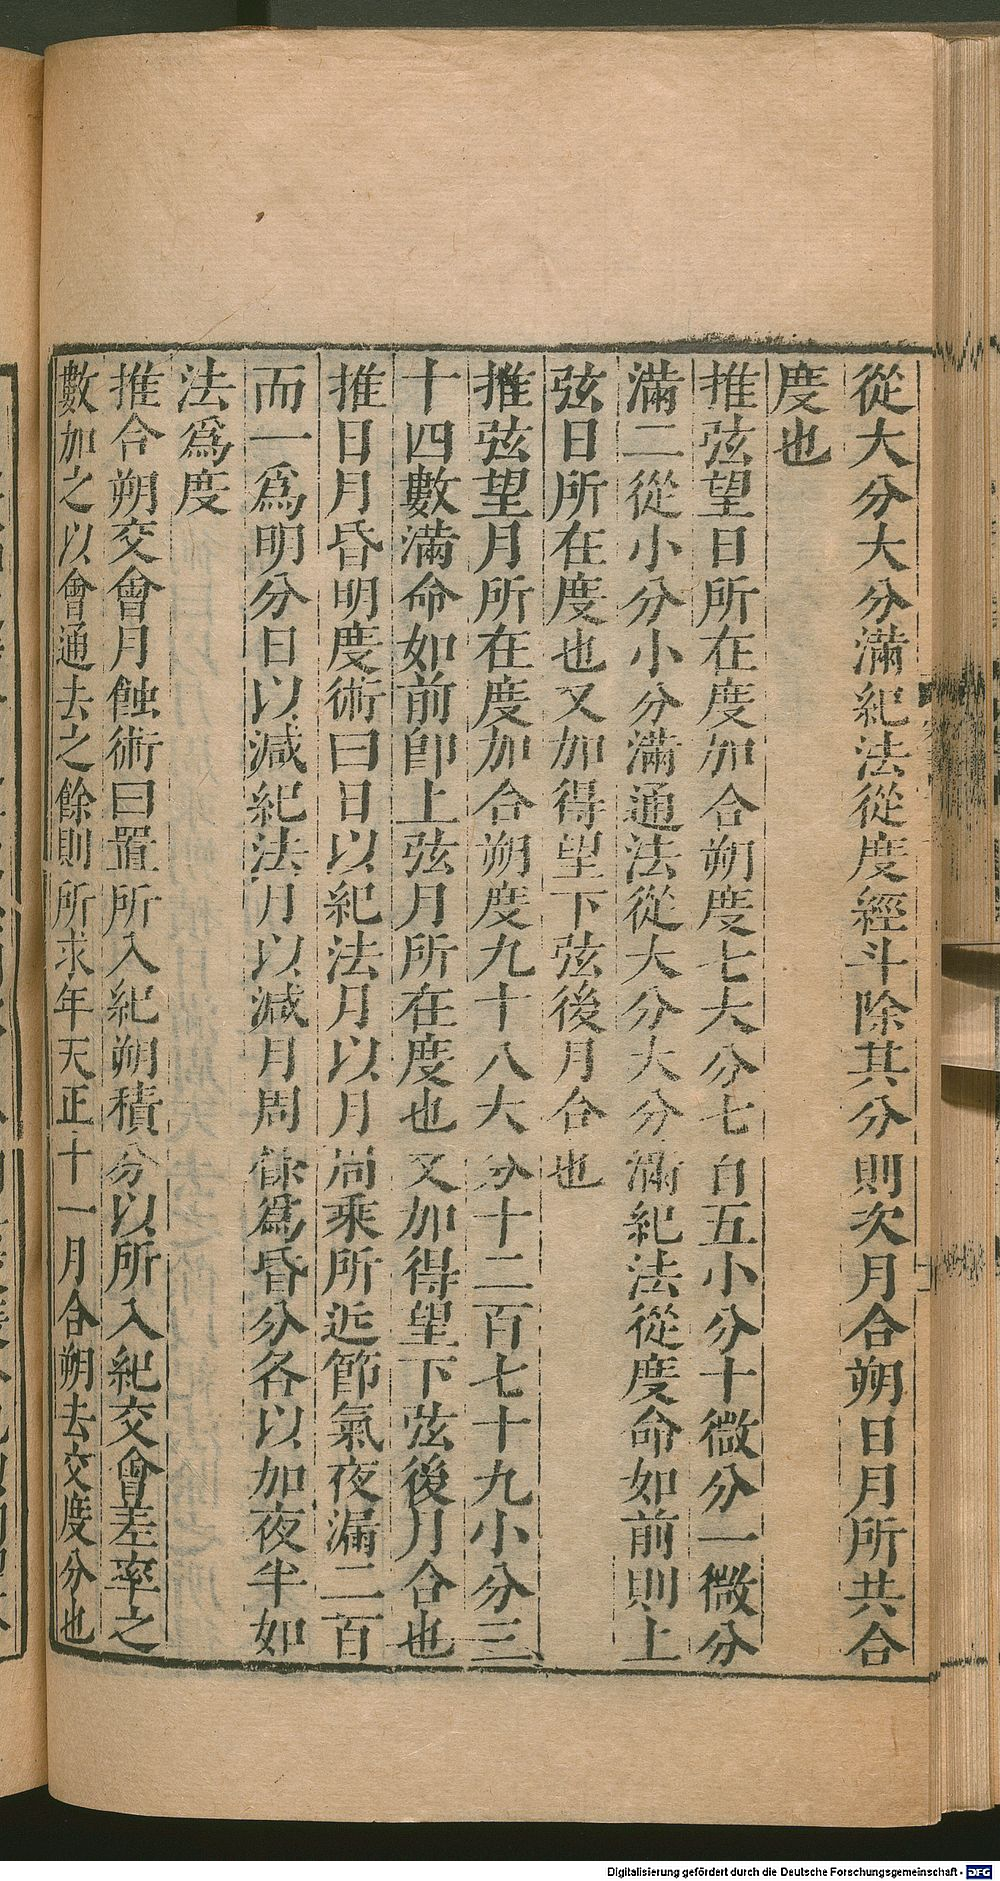 從大分大分滿紀法從度經斗除其分則次月合朔日月所共合
度也
推弦望日所在度加合朔度七大分七百五小分十微分一微分
滿二從小分小分滿通法從大分大分滿紀法從度命如前則上
弦日所在度也又加得望下弦後月合也
推弦望月所在度加合朔度九十八大分十二百七十九小分三
十四數滿命如前卽上弦月所在度也又加得望下弦後月合也
推日月昏明度術曰日以紀法月以月周乘所近節氣夜漏二百
而一爲明分日以減紀法月以減月周餘爲昏分各以加夜半如
法爲度
推合朔交會月蝕術曰置所入紀朔積分以所入紀交會差率之
數加之以會通去之餘則所求年天正十一月合朔去交度分也
Digitalisierung gefördert durch die Deutsche Forschungsgemeinschaft - DFG